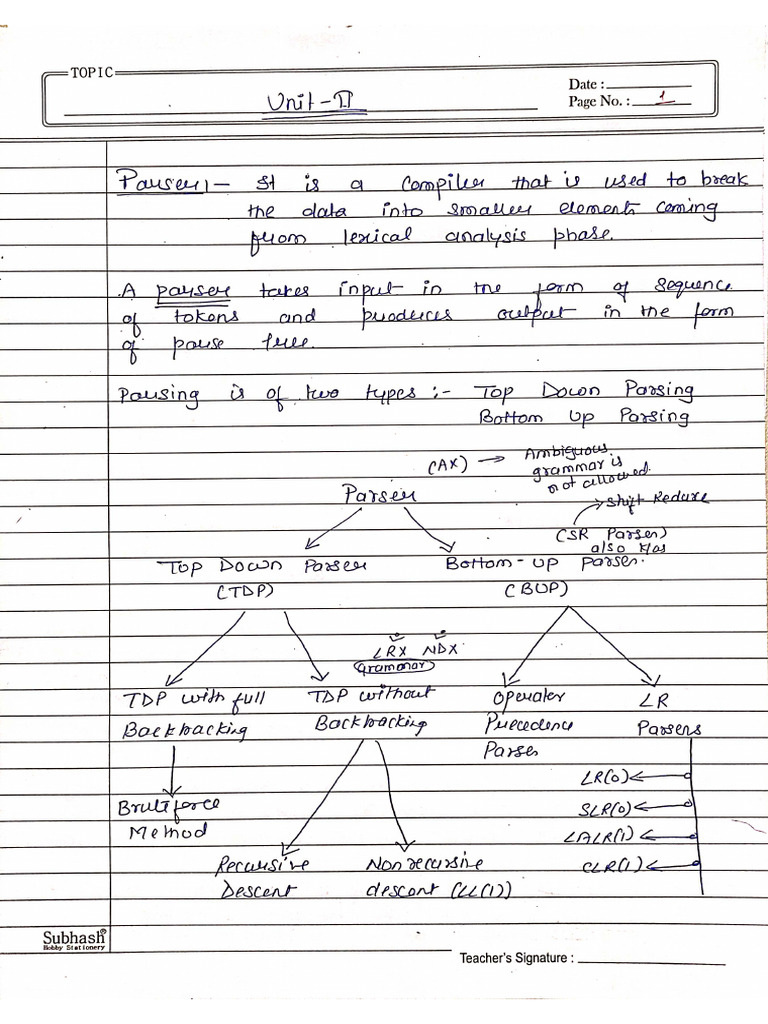 TOPIC
Date :
Unit-II
Page No. : 1
Parser:- It is a compiler that is used to break
the data into smaller elements coming
from lexical analysis phase.
A parser takes input in the form of sequence
of tokens and produces output in the form
of parse tree.
Parsing is of two types :- Top Down Parsing
Bottom Up Parsing
(AX) → Ambiguous
grammar is
not allowed.
Parser
→ Shift Reduce
(SR Parser)
also k/as
Top Down Parser
Bottom-up parser.
(TDP)
(BUP)
LRX NDX
Grammar
TDP with full
Backtracking
TDP without
Backtracking
Operator
Precedence
Parser
LR
Parsers
Bruteforce
Method
LR(0)
SLR(0)
LALR(1)
CLR(1)
Recursive
Descent
Non recursive
descent (LL(1))
Subhash®
Hobby Stationery
Teacher's Signature :